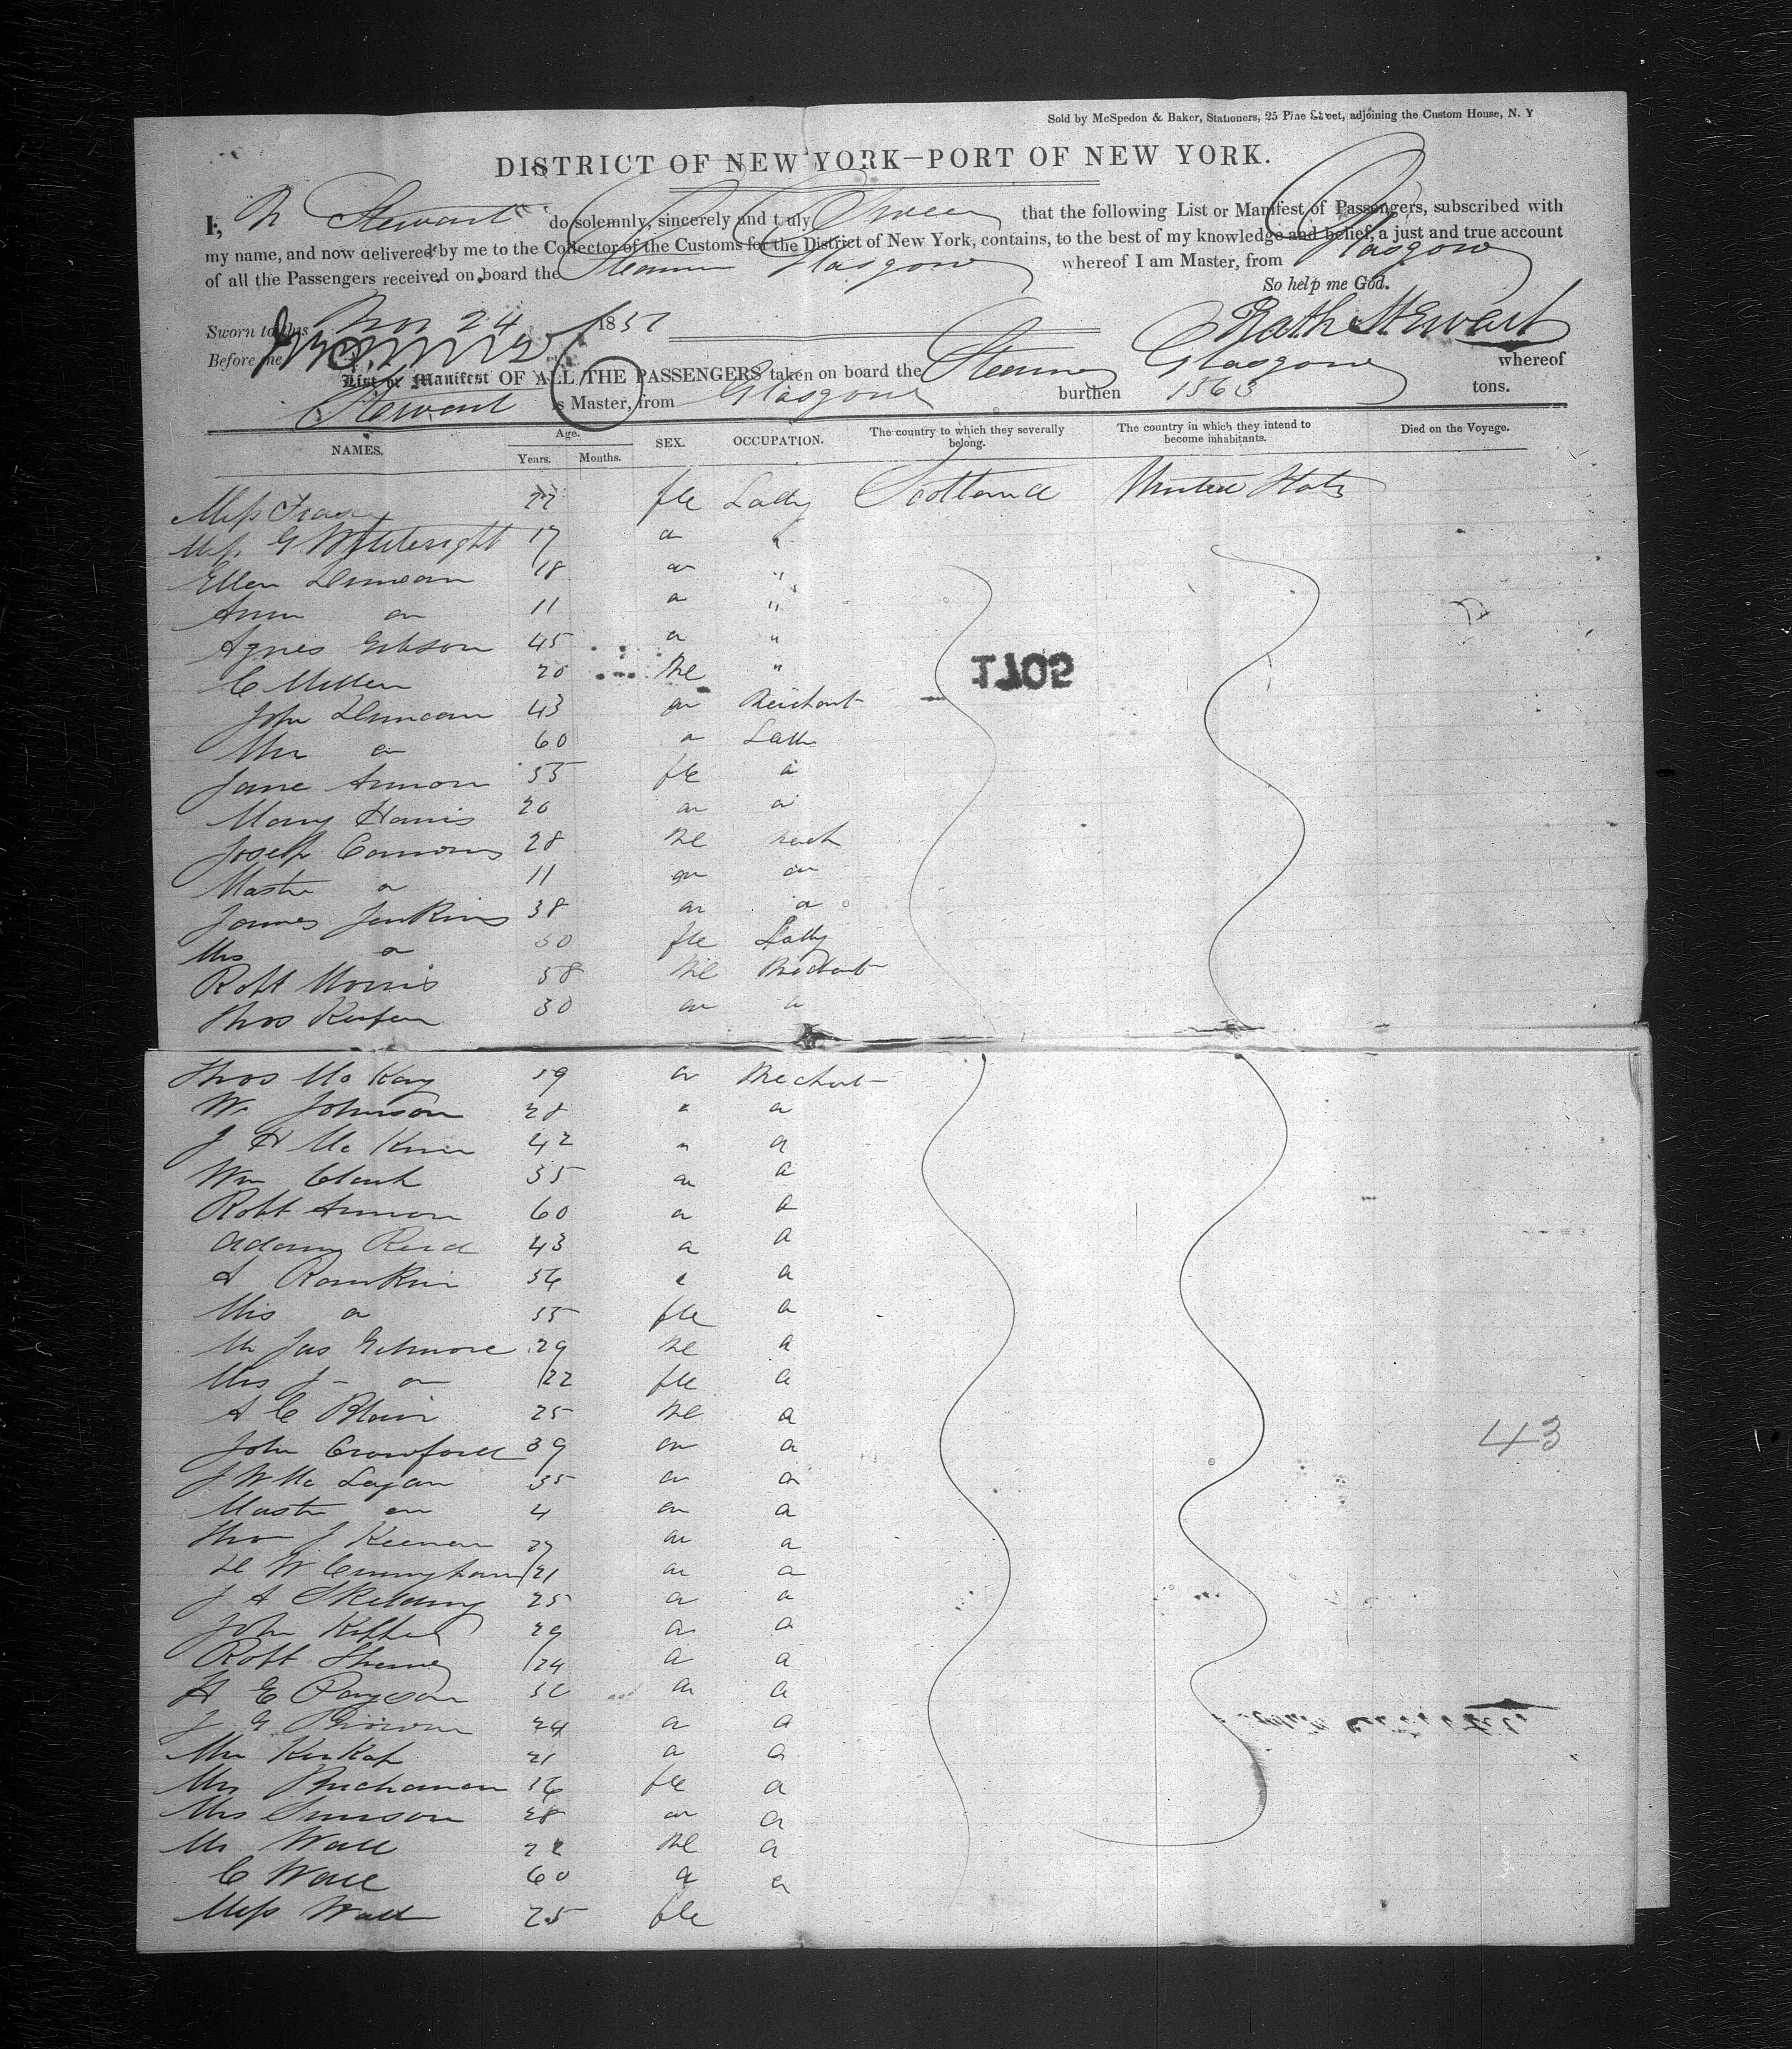 Sold by McSpedon & Baker, Stationers, 25 Pine Street, adjoining the Custom House, N. Y
DISTRICT OF NEW YORK—PORT OF NEW YORK.
I, N Stewart do solemnly, sincerely and truly Swear that the following List or Manifest of Passengers, subscribed with
my name, and now delivered by me to the Collector of the Customs for the District of New York, contains, to the best of my knowledge and belief, a just and true account
of all the Passengers received on board the Steamer Glasgow whereof I am Master, from Glasgow
So help me God.
Sworn to this Nov 24 1851
Before me
List or Manifest OF ALL THE PASSENGERS taken on board the Steamer Glasgow whereof
Stewart is Master, from Glasgow burthen 1563 tons.
NAMES. Age. Years. Months. SEX. OCCUPATION. The country to which they severally belong. The country in which they intend to become inhabitants. Died on the Voyage.
Miss 22 fle Lady Scotland United States
Miss G Whiteright 17 a "
Ellen Duncan 18 a "
Ann a 11 a "
Agnes Gibson 45 a "
C Miller 20 Me "
1705
John Duncan 43 a Merchant
a 60 a Lady
Jane 55 fle a
Mary Harris 20 a a
Joseph 28 Me
Master a 11 a a
James Jenkins 38 a a
Mrs a 30 fle Lady
Robt Morris 58 Me Mechant
Thos 30 a a
Thos McKay 59 a Mechant
Wm Johnson 28 " a
J H Mc 42 " a
Wm Clark 35 a a
Robt 60 a a
Adam Reid 43 a a
A Rankin 56 a
Mrs a 55 fle a
Mr Jas Gilmore 29 Me a
Mrs J - a 22 fle a
A C Blair 25 Me a
John Crawford 39 a a
43
J W Mc Lagan 35 a a
Master a 4 a a
J Keenan 27 a a
W Cunningham 21 a a
J A 25 a a
John 29 a a
Robt 24 a a
H E Payson a a
J G Brown 24 a a
21 a a
Mrs Buchanan fle a
Mrs Simson 28 a a
Mr Wall 22 Me a
C Wall 60 a a
Miss Wall 25 fle